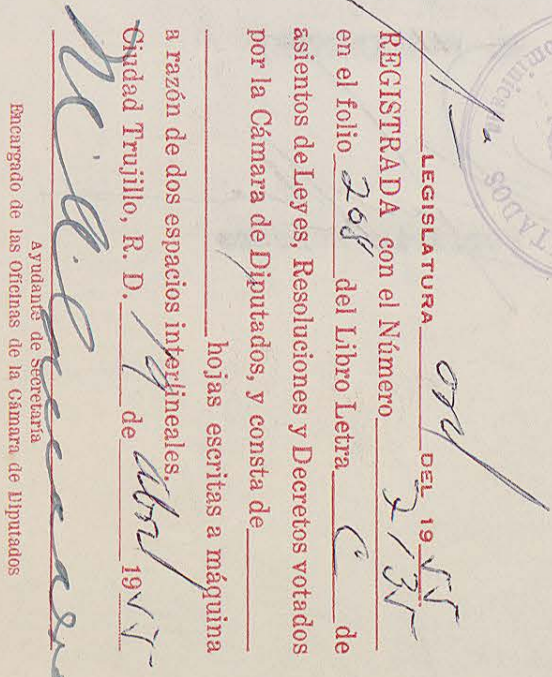 ominicana
TADOS
1ª LEGISLATURA ord DEL 1955
REGISTRADA con el Número
en el folio 268 del Libro Letra C de
asientos de Leyes, Resoluciones y Decretos votados
por la Cámara de Diputados, y consta de
hojas escritas a máquina
a razón de dos espacios interlineales.
Ciudad Trujillo, R. D. 19 de abril 1955
Ayudante de Secretaría
Encargado de las Oficinas de la Cámara de Diputados